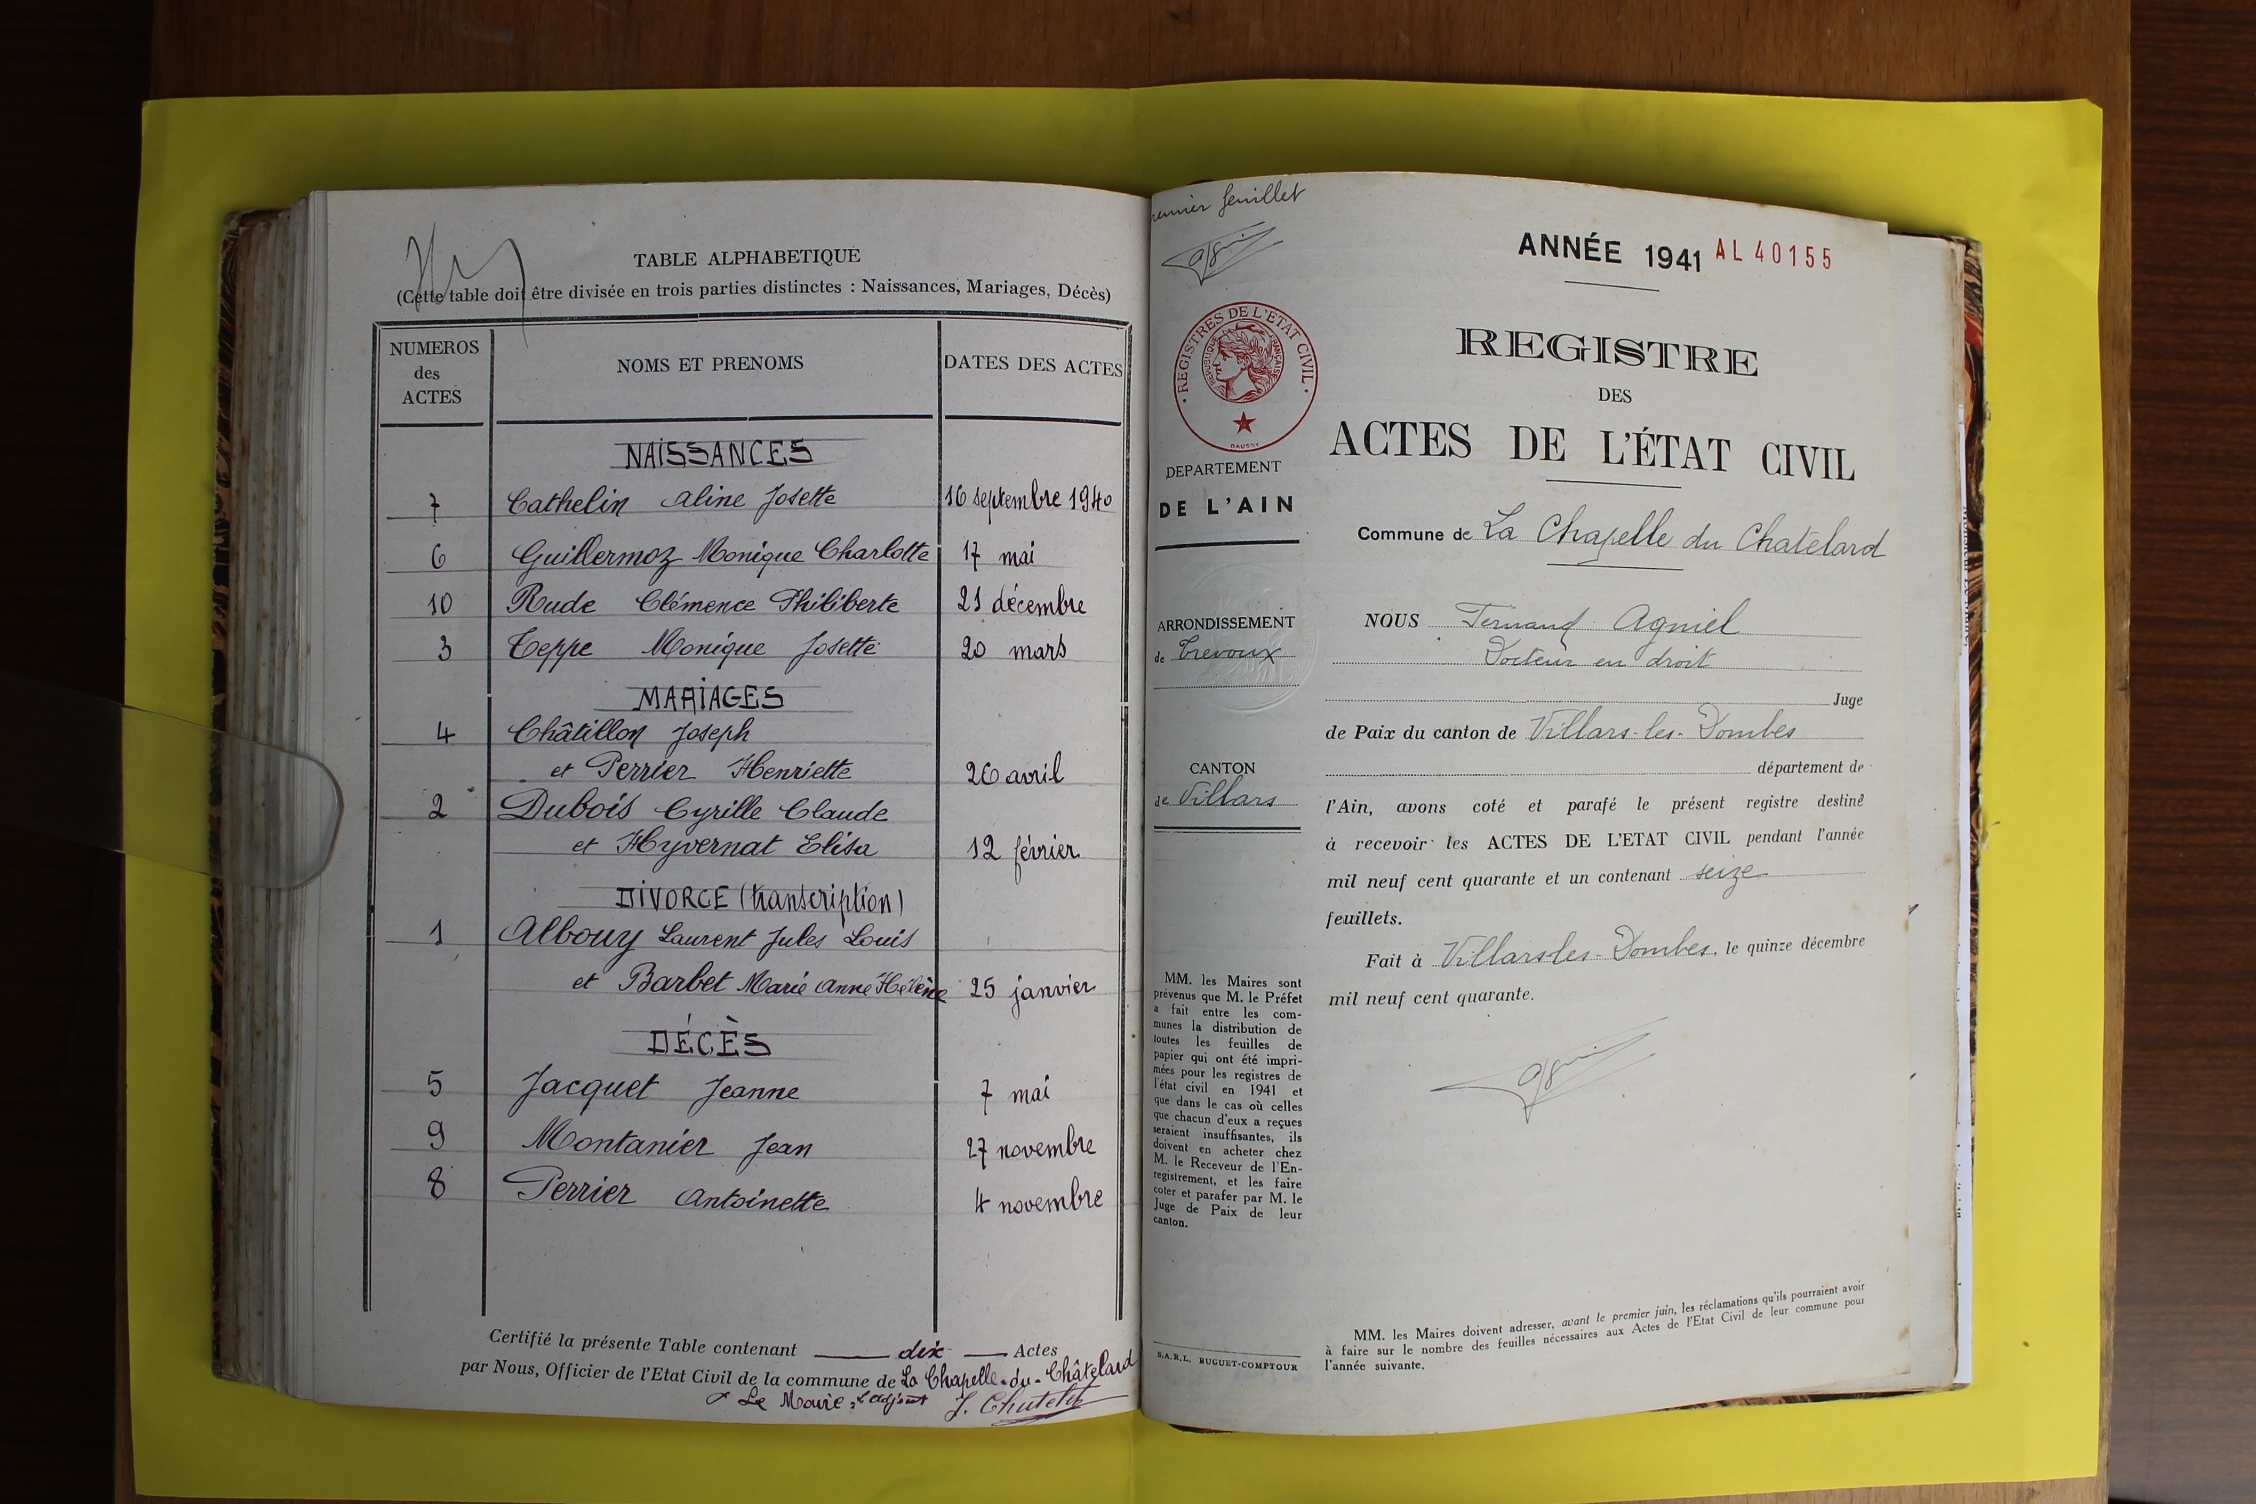 TABLE ALPHABETIQUE
(Cette table doit être divisée en trois parties distinctes : Naissances, Mariages, Décès)
NUMEROS des ACTES NOMS ET PRENOMS DATES DES ACTES
NAISSANCES
7 Cathelin Aline Josette 16 septembre 1940
6 Guillermoz Monique Charlotte 17 mai
10 Rude Clémence Philiberte 21 décembre
3 Teppe Monique Josette 20 mars
MARIAGES
4 Châtillon Joseph
et Perrier Henriette 26 avril
2 Dubois Cyrille Claude
et Hyvernat Elisa 12 février
DIVORCE (transcription)
1 Albouy Laurent Jules Louis
et Barbet Marie Anne Hélène 25 janvier
DÉCÈS
5 Jacquet Jeanne 7 mai
9 Montanier Jean 27 novembre
8 Perrier Antoinette 4 novembre
Certifié la présente Table contenant dix Actes
par Nous, Officier de l'Etat Civil de la commune de La Chapelle-du-Châtelard
Le Maire, l'adjoint
premier feuillet
ANNÉE 1941 AL 40155
REGISTRES DE L'ETAT CIVIL
REPUBLIQUE FRANÇAISE
DAUSSY
REGISTRE
DES
ACTES DE L'ÉTAT CIVIL
DEPARTEMENT
DE L'AIN
Commune de La Chapelle du Chatelard
ARRONDISSEMENT
de Trevoux
CANTON
de Villars
NOUS Fernand Agniel
Docteur en droit
Juge
de Paix du canton de Villars-les-Dombes
département de
l'Ain, avons coté et parafé le présent registre destiné
à recevoir les ACTES DE L'ETAT CIVIL pendant l'année
mil neuf cent quarante et un contenant seize
feuillets.
Fait à Villars-les-Dombes, le quinze décembre
mil neuf cent quarante.
MM. les Maires sont
prévenus que M. le Préfet
a fait entre les com-
munes la distribution de
toutes les feuilles de
papier qui ont été impri-
mées pour les registres de
l'état civil en 1941 et
que dans le cas où celles
que chacun d'eux a reçues
seraient insuffisantes, ils
doivent en acheter chez
M. le Receveur de l'En-
registrement, et les faire
coter et parafer par M. le
Juge de Paix de leur
canton.
S.A.R.L. BUGUET-COMPTOUR
MM. les Maires doivent adresser, avant le premier juin, les réclamations qu'ils pourraient avoir
à faire sur le nombre des feuilles nécessaires aux Actes de l'Etat Civil de leur commune pour
l'année suivante.